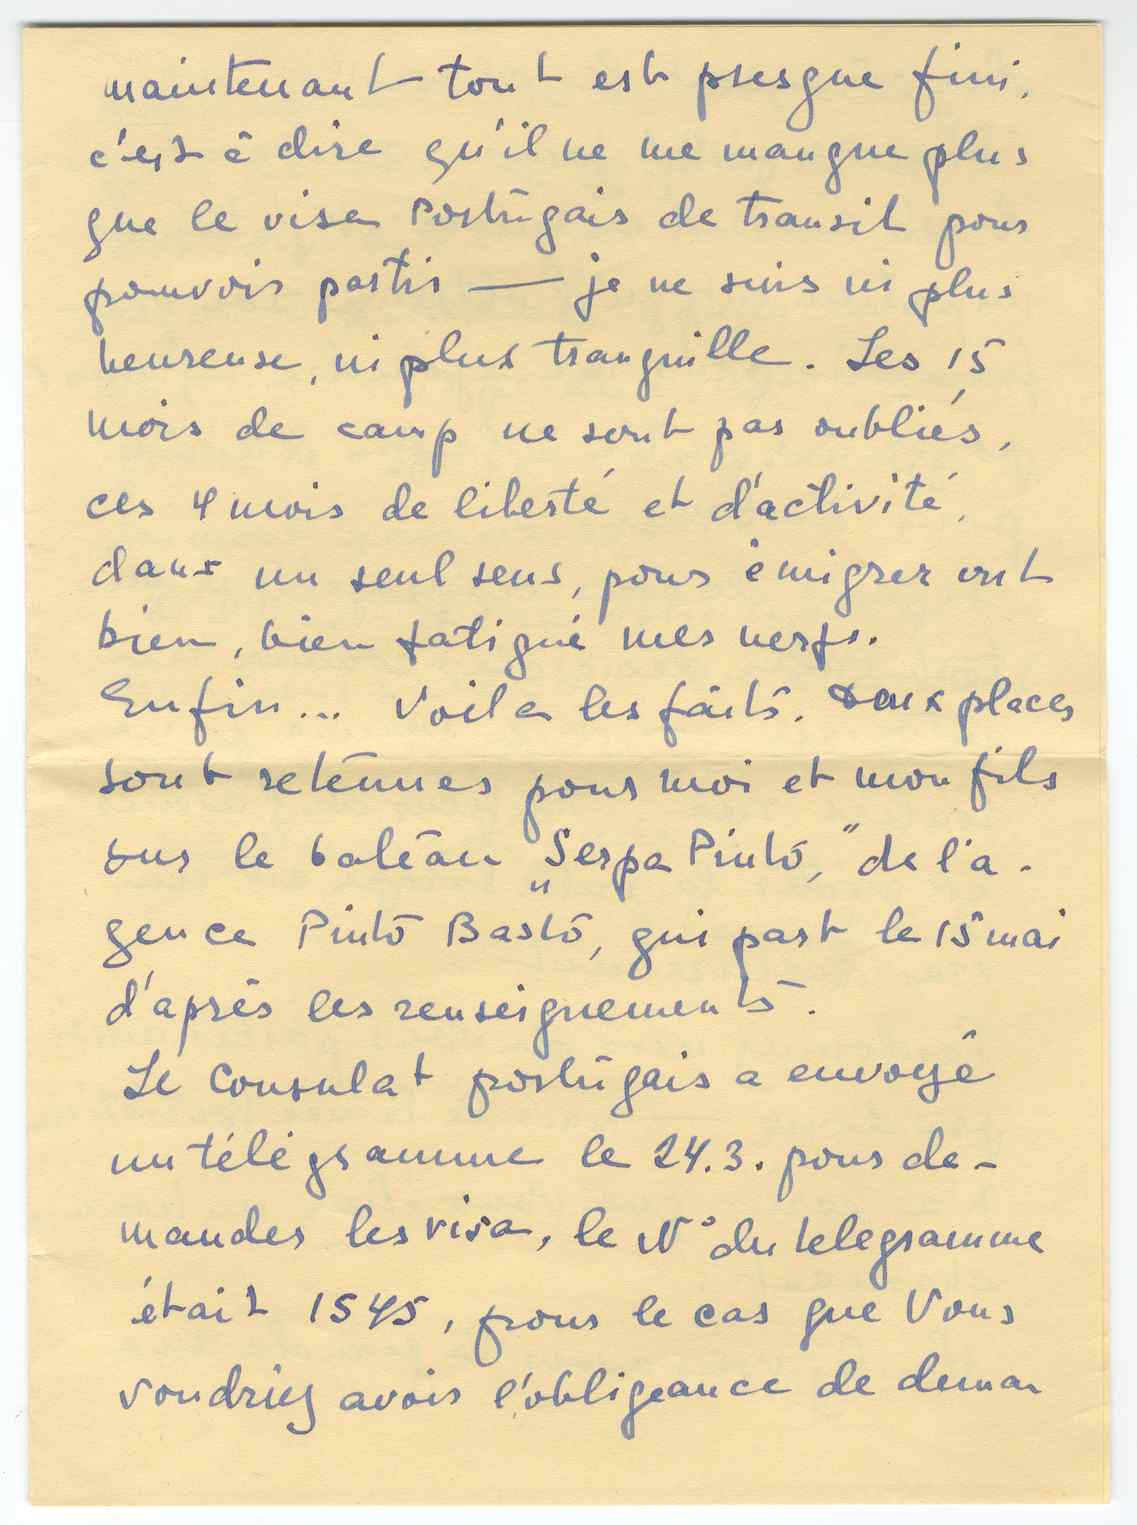 maintenant tout est presque fini,
c'est à dire qu'il ne me manque plus
que le visa Portugais de transit pour
pouvoir partir — je ne suis ni plus
heureuse, ni plus tranquille. Les 15
mois de camp ne sont pas oubliés,
ces 4 mois de liberté et d'activité,
dans un seul sens, pour émigrer ont
bien, bien fatigué mes nerfs.
Enfin... Voila les faits. Deux places
sont retenues pour moi et mon fils
sur le bateau „Serpa Pinto,” de l'a-
gence Pinto Basto, qui part le 15 mai
d'après les renseignements.
Le Consulat portugais a envoyé
un télégramme le 24.3. pour de-
mander les visa, le N° du telegramme
était 1545, pour le cas que Vous
voudriez avoir l'obligeance de deman